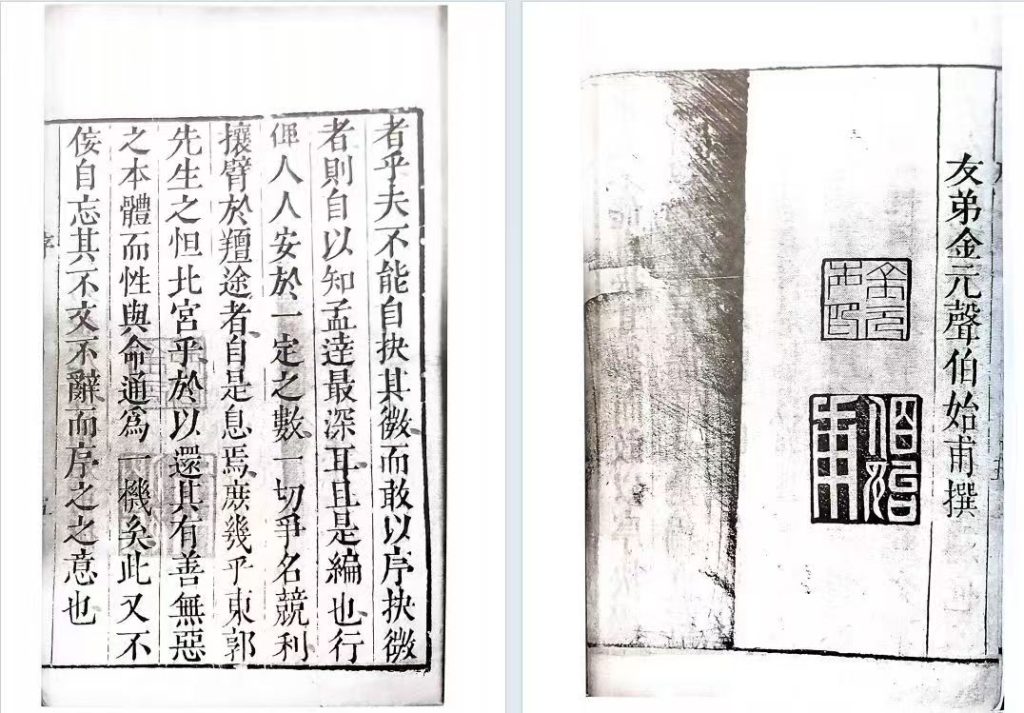 者乎夫不能自抉其微而敢以序抉微
者則自以知孟逵最深耳且是編也行
俾人人安於一定之數一切爭名競利
攘臂於羶途者自是息焉庶幾乎東郭
先生之怛北宮乎於以還其有善無惡
之本體而性與命通爲一機矣此又不
佞自忘其不文不辭而序之之意也
序
友弟金元聲伯始甫撰
伯始甫